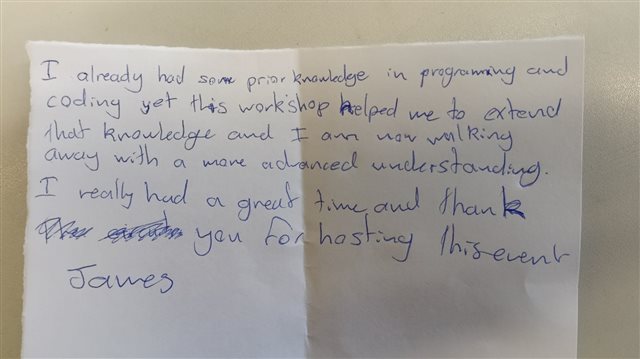 I already had some prior knowledge in programming and
coding yet this workshop helped me to extend
that knowledge and I am now walking
away with a more advanced understanding.
I really had a great time and thank
you for hosting this event
James